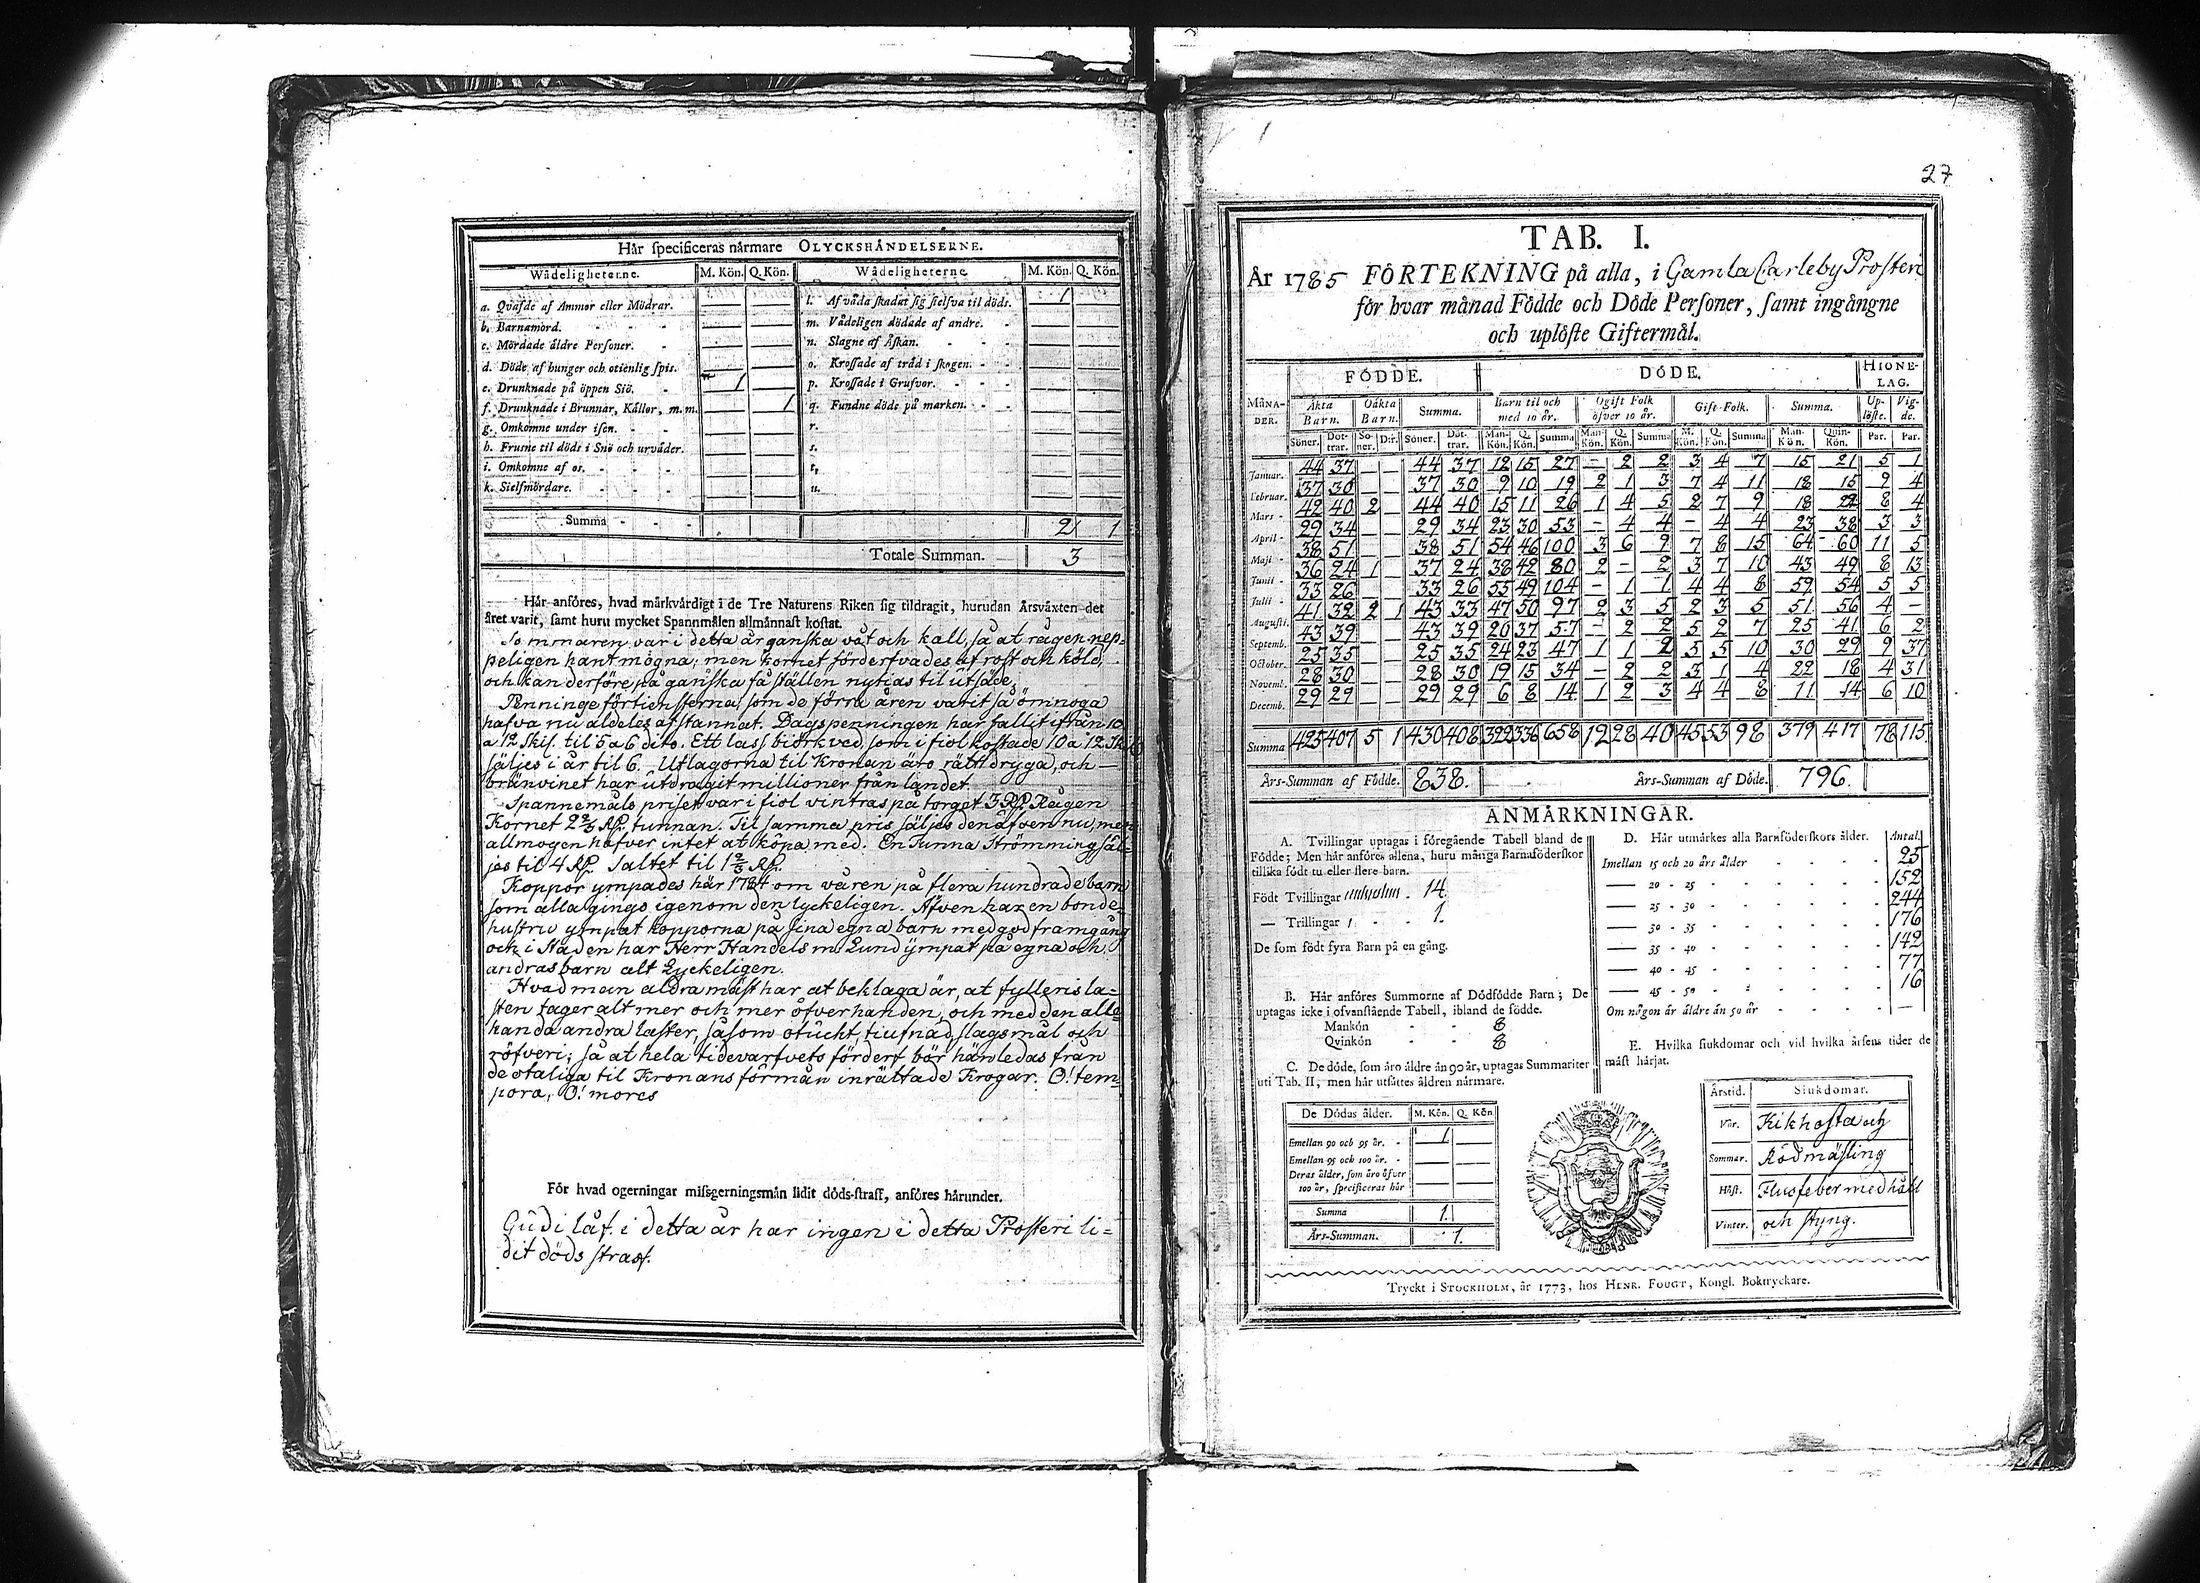 Hår specificeras nårmare OLYCKSHÅNDELSERNE.
Wådeligheterne. M. Kön. Q. Kön. Wådeligheterne. M. Kön. Q. Kön.
a. Qväfde af Ammor eller Mödrar. — — l. Af våda skadat sig sielfva til döds. 1 —
b. Barnamord. — — m. Vådeligen dödade af andre. — —
c. Mördade äldre Personer. — — n. Slagne af Åskan. — —
d. Döde af hunger och otienlig spis. — — o. Krossade af träd i skogen. — —
e. Drunknade på öppen Siö. 1 — p. Krossade i Grufvor. — —
f. Drunknade i Brunnar, Kållor, m. m. — 1 q. Fundne döde på marken. — —
g. Omkomne under isen. — — r.
h. Frusne til döds i Snö och urväder. — — s.
i. Omkomne af os. — — t.
k. Sielfmördare. — — u.
Summa 2 1
Totale Summan. 3
Hår anföres, hvad mårkvårdigt i de Tre Naturens Riken sig tildragit, hurudan Årsväxten det
året varit, samt huru mycket Spannmålen allmånnast kostat.
Sommaren var i detta år ganska våt och kall, så at rågen nep-
peligen hant mögna; men kornet förderfvades af rost och köld,
och kan derföre på ganska få ställen nytias til utsäde.
Penninge förtiensterna, som de förra åren varit så ömnoga
hafva nu aldeles afstannat. Dagspenningen har fallit ifrån 10
a 12 Skil. til 5 a 6 dito. Ett lass biörkved, som i fiol kostade 10 a 12 Skil
säljes i år til 6. Utlagorna til Kronan äro rätt dryga, och —
bränvinet har utdragit millioner från landet.
Spannemåls priset var i fiol vintras på torget 3 Rd. Rågen
Kornet 2 2/3 Rd. tunnan. Til samma pris säljes den äfven nu, men
allmogen hafver intet at köpa med. En Tunna Strömming säl-
jes til 4 Rd. Saltet til 1 2/3 Rd.
Koppor ympades här 1784 om våren på flera hundrade barn
som alla gingo igenom den lyckeligen. Äfven har en bonde-
hustru ympat kopporna på sina egna barn med god framgång
och i Staden har Herr Handelsm. Lund ympat på egna och
andras barn alt Lyckeligen.
Hvad man aldramäst har at beklaga är, at fylleris la-
sten tager alt mer och mer öfverhanden, och med den alle-
handa andra laster, såsom otucht, tiufnad, slagsmål och
röfveri; så at hela tidevarfvets förderf bör härledas från
de otaliga til Kronans förmån inrättade Krogar. O! tem-
pora, O! mores
För hvad ogerningar missgerningsmån lidit döds-straff, anföres hårunder.
Gudi låf. i detta år har ingen i detta Prosteri li-
dit döds straff.
27
TAB. I.
År 1785 FÖRTEKNING på alla, i Gamla Carleby Prosteri
för hvar månad Födde och Döde Personer, samt ingångne
och uplöste Giftermål.
MÅNA-DER. FÖDDE. DÖDE. HIONE-LAG.
Äkta Barn. Oäkta Barn. Summa. Barn til och med 10 år. Ogift Folk öfver 10 år. Gift Folk. Summa. Up-löste. Vig-de.
Söner. Döt-trar. Sö-ner. D:r. Söner. Döt-trar. Man-Kön. Q. Kön. Summa Man-Kön. Q. Kön. Summa M. Kön. Q. Kön. Summa Man-Kön. Quin-Kön. Par. Par.
Januar. 44 37 — — 44 37 12 15 27 — 2 2 3 4 7 15 21 5 1
Februar. 37 30 — — 37 30 9 10 19 2 1 3 7 4 11 18 15 9 4
Mars 42 40 2 — 44 40 15 11 26 1 4 5 2 7 9 18 22 8 4
April 29 34 — — 29 34 23 30 53 — 4 4 — 4 4 23 38 3 3
Maji 38 51 — — 38 51 54 46 100 3 6 9 7 8 15 64 60 11 5
Junii 36 24 1 — 37 24 38 42 80 2 — 2 3 7 10 43 49 8 13
Julii 33 26 — — 33 26 55 49 104 — 1 1 4 4 8 59 54 5 5
Augusti. 41 32 2 1 43 33 47 50 97 2 3 5 2 3 5 51 56 4 —
Septemb. 43 39 — — 43 39 20 37 57 — 2 2 5 2 7 25 41 6 2
October. 25 35 — — 25 35 24 23 47 1 1 2 5 5 10 30 29 9 37
Novemb. 28 30 — — 28 30 19 15 34 — 2 2 3 1 4 22 18 4 31
Decemb. 29 29 — — 29 29 6 8 14 1 2 3 4 4 8 11 14 6 10
Summa 425 407 5 1 430 408 322 336 658 12 28 40 45 53 98 379 417 78 115
Års-Summan af Födde. 838. Års-Summan af Döde. 796.
ANMÅRKNINGAR.
A. Tvillingar uptagas i föregående Tabell bland de
Födde; Men hår anföres allena, huru många Barnaföderskor
tillika födt tu eller flere barn.
Födt Tvillingar 14.
— Trillingar 1.
De som födt fyra Barn på en gång.
B. Hår anföres Summorne af Dödfödde Barn; De
uptagas icke i ofvanstående Tabell, ibland de födde.
Mankön 8
Qvinkön 8
C. De döde, som åro åldre ån 90 år, uptagas Summariter
uti Tab. II, men hår utsättes åldren nårmare.
De Dödas ålder. M. Kön. Q. Kön.
Emellan 90 och 95 år. 1 —
Emellan 95 och 100 år. — —
Deras ålder, som åro öfver
100 år, specificeras hår — —
Summa 1.
Års-Summan. 1.
D. Hår utmårkes alla Barnföderskors ålder. Antal.
Imellan 15 och 20 års ålder 25
— 20 - 25 152
— 25 - 30 244
— 30 - 35 176
— 35 - 40 142
— 40 - 45 77
— 45 - 50 16
Om någon år åldre ån 50 år —
E. Hvilka siukdomar och vid hvilka årsens tider de
måst hårjat.
Årstid. Siukdomar.
Vår. Kikhosta och
Sommar. Rödmäsling
Höst. Flussfeber med håll
Vinter. och styng.
Tryckt i STOCKHOLM, år 1773, hos HENR. FOUGT, Kongl. Boktryckare.